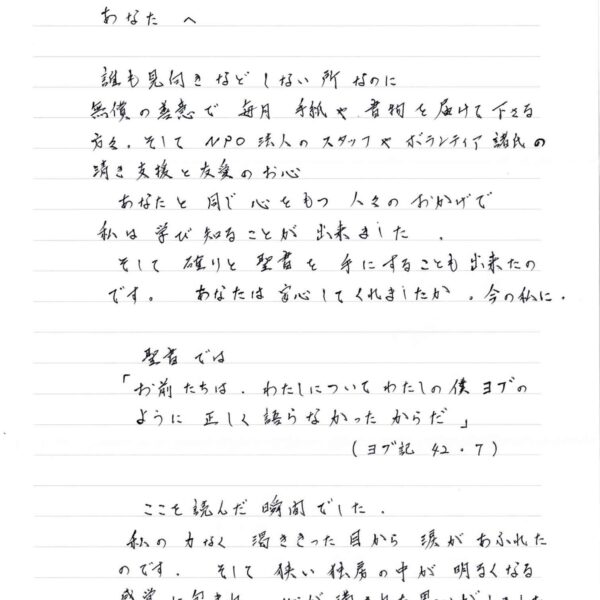 あなたへ
誰も見向きなどしない所なのに
無償の善意で毎月 手紙や書物を届けて下さる
方々、そして NPO法人のスタッフやボランティア諸氏の
清き支援と友愛のお心
あなたと同じ心をもつ人々のおかげで
私は学び知ることが出来ました.
そして 確りと聖書を手にすることも出来たの
です。 あなたは安心してくれましたか、今の私に.
聖書では
「お前たちは、わたしについてわたしの僕ヨブの
ように正しく語らなかったからだ」
(ヨブ記 42・7)
ここを読んだ瞬間でした.
私の力なく 渇ききった目から 涙があふれた
のです. そして 狭い独房の中が明るくなる